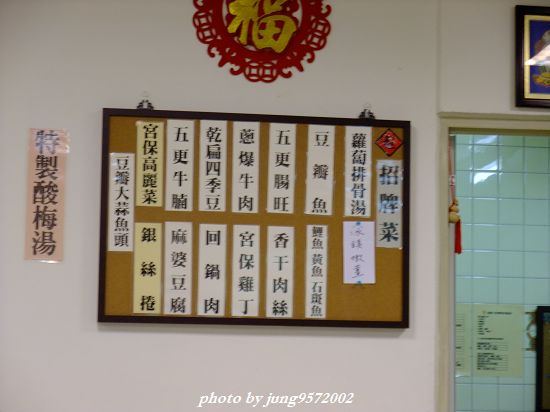 福
春
招牌菜
蘿蔔排骨湯
豆瓣魚
鯉魚黃魚石斑魚
五更腸旺
香干肉絲
蔥爆牛肉
宮保雞丁
乾扁四季豆
回鍋肉
五更牛腩
麻婆豆腐
宮保高麗菜
銀絲捲
豆瓣大蒜魚頭
特製酸梅湯
photo by jung9572002